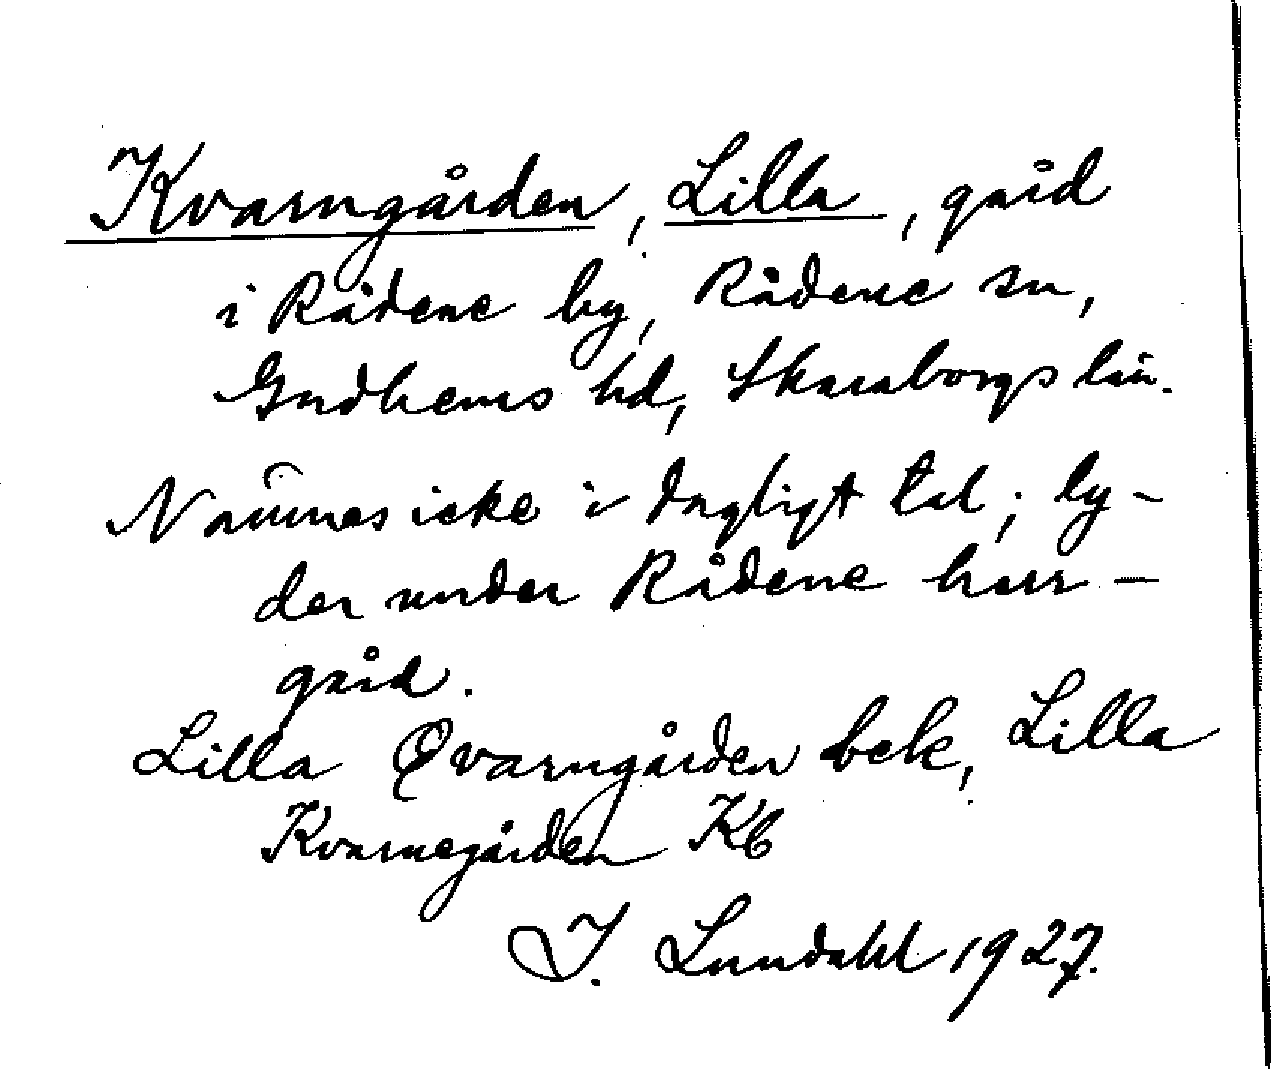 Kvarngården, Lilla, gård
i Rådene by, Rådene sn,
Gudhems hd, Skaraborgs län.
Nämnes icke i dagligt tal; ly-
der under Rådene herr-
gård.
Lilla Qvarngården bek, Lilla
Kvarnegården Kb
I. Lundahl 1927.